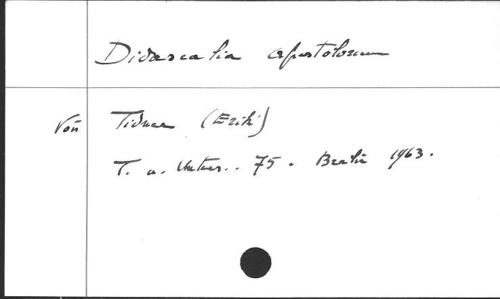 Didascalia apostolorum
Voir Tidner (Erik)
T. u. Unters.. 75. Berlin 1963.